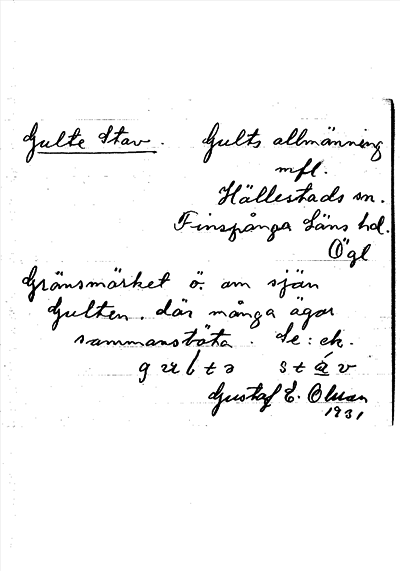 Gulte Stav. Gults allmänning
mfl.
Hällestads sn.
Finspånga Läns hd.
Ögl
Gränsmärket ö. om sjön
Gulten. där många ägor
sammanstöta. Se: ek.
Gustaf E. Olsson
1931